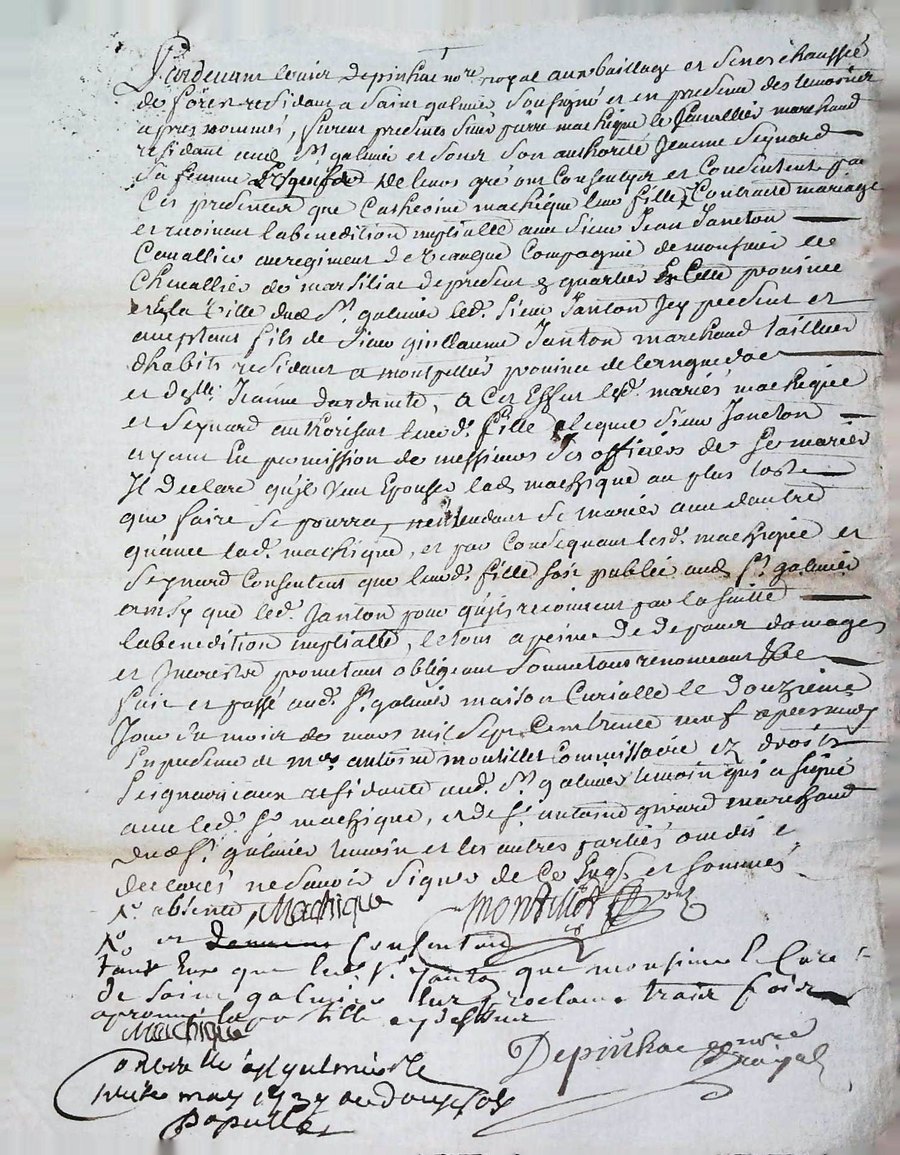 Pardevant louis Depinhac no.re royal aux bailliage et senechaussée
de forest residant a Saint galmier soussigné et en presence des temoins
apres nommés, furent presents sieur pierre machique le marchand
residant aud. St galmier et sous son authorité Jeanne Seynard
sa femme de leurs gré ont consenty et consentent par
ces presentes que Catherine machique leur fille Contracte mariage
et recoivent labenedition nuptialle avec sieur Jean Janton
Cavallier au regiment de Compagnie de monsieur le
Chevallier de marsiliac de present quartier province
la ville dud. St. galmier led. sieur Janton Icy present et
acceptant fils de sieur guillaume Janton marchand tailleur
dhabits residant a montpellier province de lenguedoc
et de Jeanne a Cet Effet lesd. mariés machique
et Seynard authorisent leurd. fille sieur Janton
ayant Eu permission de messieurs Les officiers de se marier
Il declare quil veut Epouser lad. machique au plus toste
que faire se pourra, nentendant se marier avec dautre
quavec lad. machique, et par Consequant lesd. machique et
Seynard Consentent que leurd. fille soit publiée aud. St. galmier
ainsy que led. Janton pour quils recoivent par la suitte
labenedition nuptialle, le tout a peine de de pans domages
et Interests prometant obligeant soumetant renonceant
fait et passé aud. St. galmier maison Curialle le douzieme
Jour du mois de mars mil sept Cent trente neuf apres midy
En presence de mre antoine montillet Commissaire ez droits
seigneuriaux residant aud. St. galmier temoin qui a signé
avec led. sr. machique, et de sr. antoine girard marchand
dud. St. galmier temoin et les autres partiés ont dit et
declarés ne savoir signer de ce Enqs. et sommés
Machique Montillet
et Consentent
tant Eux que led. sr. Janton que monsieur le Curé
de Saint galmier leur proclame trois fois
aprouvé la postille cy dessus
Machique
Depinhac no.re royal
Controllé a St galmier le
may 1739 douze sols
papulle